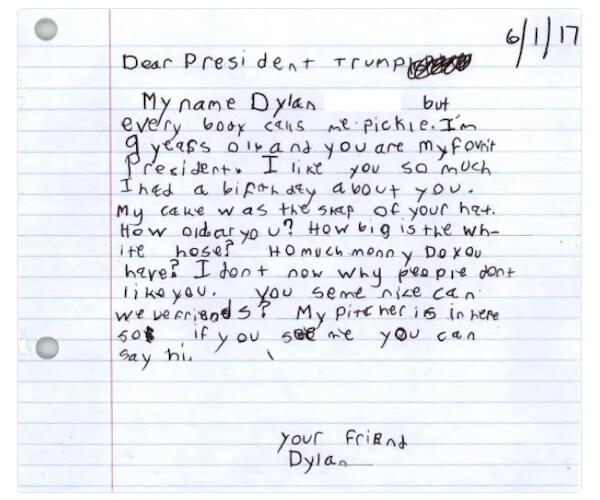 6/1/17
Dear President Trump
My name Dylan but
every body calls me pickle. I'm
9 years old and you are my fovrit
President. I like you so much
I had a birthday about you.
My cake was the shap of your hat.
How old ar you? How big is the wh-
ite hose? Ho much monny Do you
have? I dont now why people dont
like you. You seme nice can
we be friends? My pitcher is in here
so if you see me you can
say hi.
Your friend
Dylan